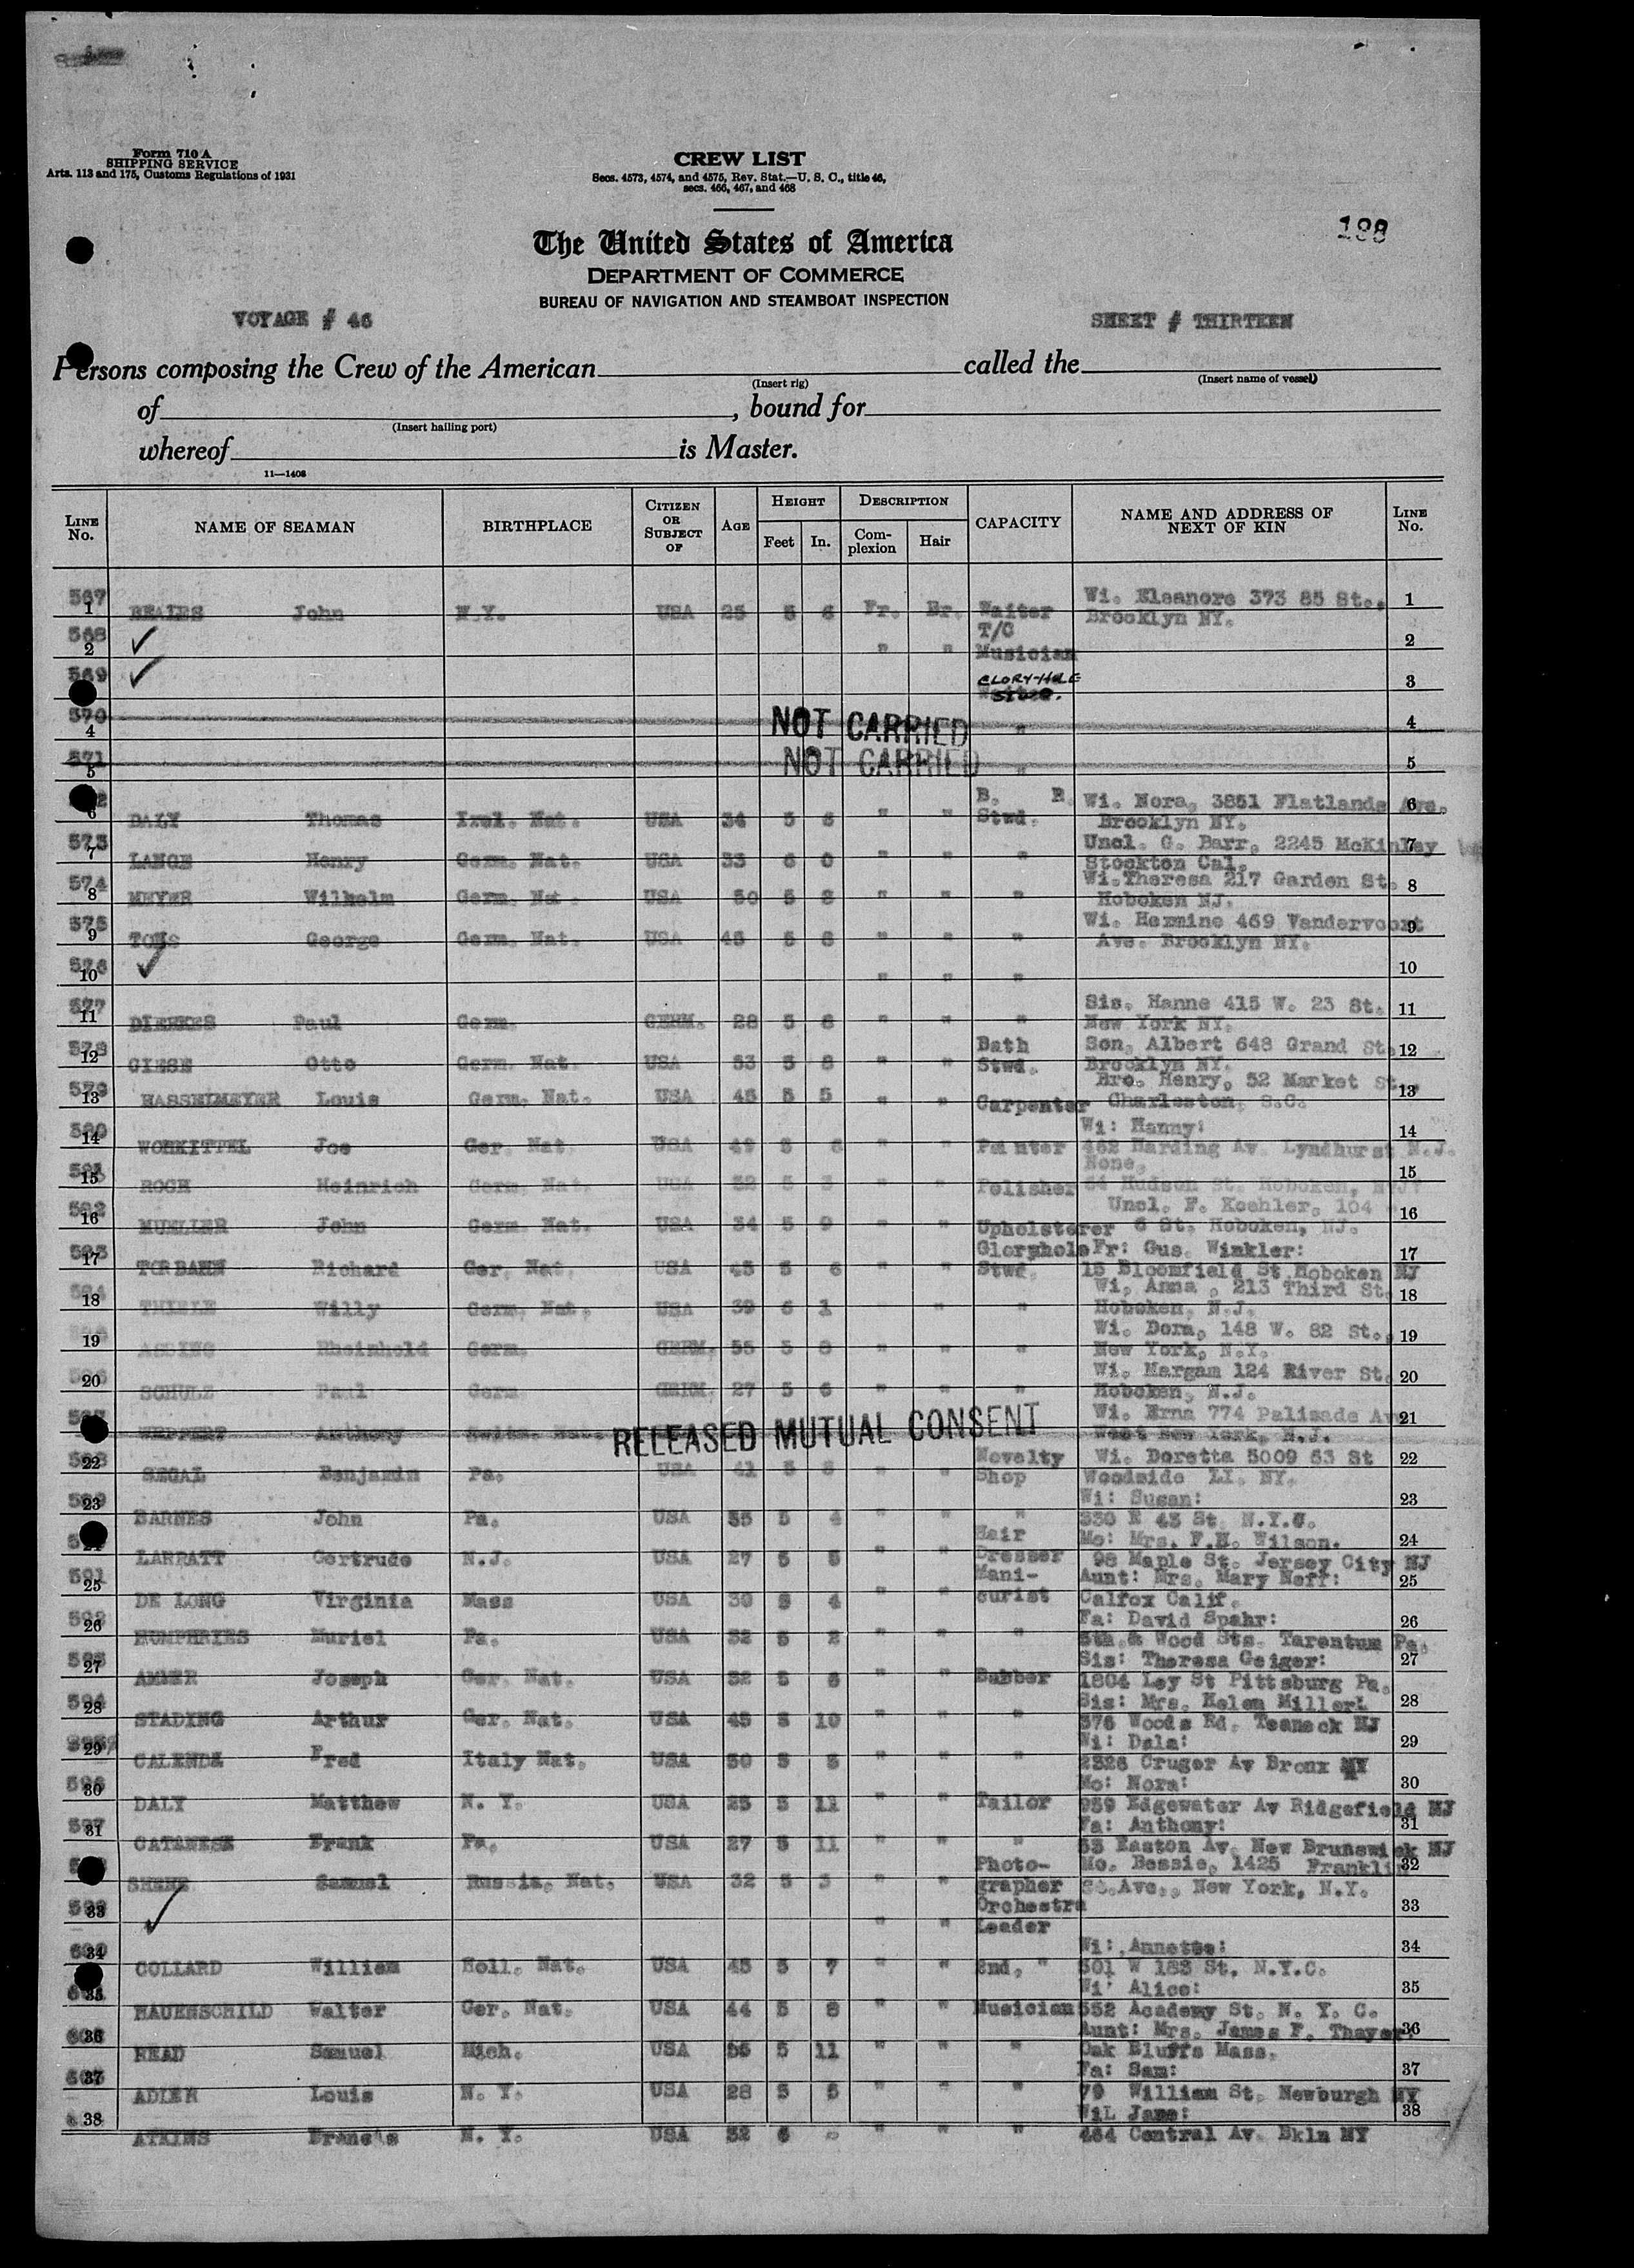 Form 710 A
SHIPPING SERVICE
Arts. 113 and 175, Customs Regulations of 1931
CREW LIST
Secs. 4573, 4574, and 4575, Rev. Stat.—U. S. C., title 46,
secs. 466, 467, and 468
188
The United States of America
DEPARTMENT OF COMMERCE
BUREAU OF NAVIGATION AND STEAMBOAT INSPECTION
VOYAGE # 46
SHEET # THIRTEEN
Persons composing the Crew of the American called the
(Insert rig) (Insert name of vessel)
of , bound for
(Insert hailing port)
whereof is Master.
11—1408
LINE No. NAME OF SEAMAN BIRTHPLACE CITIZEN OR SUBJECT OF AGE HEIGHT Feet In. DESCRIPTION Complexion Hair CAPACITY NAME AND ADDRESS OF NEXT OF KIN LINE No.
567 1 BEALES John N.Y. USA 25 5 6 Fr. Br. Waiter Wi. Eleanore 373 85 St., Brooklyn NY. 1
568 2 " " T/C Musician 2
569 GLORY-HOLE STWD. 3
570 4 NOT CARRIED " 4
571 5 NOT CARRIED " 5
6 DALY Thomas Irel. Nat. USA 34 5 6 " " B. R. Stwd. Wi. Nora, 3851 Flatlands Ave. Brooklyn NY. 6
573 7 LANGE Henry Germ. Nat. USA 33 6 0 " " " Uncl. G. Barr, 2245 McKinley Stockton Cal. 7
574 8 MEYER Wilhelm Germ. Nat. USA 50 5 8 " " " Wi. Theresa 217 Garden St. Hoboken NJ. 8
575 9 TOMS George Germ. Nat. USA 45 5 8 " " " Wi. Hermine 469 Vandervoort Ave. Brooklyn NY. 9
576 10 " " " 10
577 11 DIERKES Paul Germ. GERM. 28 5 8 " " " Sis. Hanne 415 W. 23 St. New York NY. 11
578 12 GIESE Otto Germ. Nat. USA 53 5 8 " Bath Stwd. Son, Albert 648 Grand St. Brooklyn NY. 12
579 13 HASSELMEYER Louis Germ. Nat. USA 45 5 5 " " Carpenter Bro. Henry, 52 Market St., Charleston, S.C. 13
580 14 WORKITTEL Joe Ger. Nat. USA 49 5 6 " " Painter Wi: Hanny: 462 Harding Av. Lyndhurst N.J. 14
581 15 ROCH Heinrich Germ. Nat. USA 32 5 3 " " Polisher None, 64 Hudson St. Hoboken, NJ. 15
582 16 MUELLER John Germ. Nat. USA 34 5 9 " " Upholsterer Uncl. F. Koehler, 104 6 St. Hoboken, NJ. 16
583 17 TORBAHN Richard Ger. Nat. USA 45 5 6 " " Gloryhole Stwd. Fr: Gus. Winkler: 15 Bloomfield St Hoboken NJ 17
18 THIELE Willy Germ. Nat. USA 39 6 1 " " Wi, Anna, 213 Third St. Hoboken, N.J. 18
19 Rheinhold Germ. GERM. 55 5 8 " " " Wi. Dora, 148 W. 82 St., New York, N.Y. 19
20 SCHULZ Paul Germ. GERM. 27 5 6 " " " Wi. Margam 124 River St. Hoboken, N.J. 20
WEPPERT Anthony RELEASED MUTUAL CONSENT Wi. Erna 774 Palisade Av. West New York, N.J. 21
588 22 SEGAL Benjamin Pa. USA 41 5 8 " " Novelty Shop Wi. Doretta 5009 53 St Woodside LI. NY. 22
589 23 BARNES John Pa. USA 35 5 4 " " " Wi: Susan: 330 E 43 St. N.Y.C. 23
LARRATT Gertrude N.J. USA 27 5 5 " " Hair Dresser Mo: Mrs. F.H. Wilson. 98 Maple St. Jersey City NJ 24
591 25 DE LONG Virginia Mass USA 30 5 4 " " Manicurist Aunt: Mrs. Mary Neff: Calfox Calif. 25
592 26 HUMPHRIES Muriel Pa. USA 32 5 2 " " " Fa: David Spahr: 5th & Wood Sts. Tarentum Pa. 26
593 27 AMMER Joseph Ger. Nat. USA 32 5 6 " " Barber Sis: Theresa Geiger: 1804 Ley St Pittsburg Pa. 27
594 28 STADING Arthur Ger. Nat. USA 45 5 10 " " " Sis: Mrs. Helen Miller: 376 Woods Rd. Teaneck NJ 28
29 CALENDA Fred Italy Nat. USA 50 5 5 " " " Wi: Dala: 2326 Cruger Av Bronx NY 29
596 30 DALY Matthew N. Y. USA 25 5 11 " " Tailor Mo: Nora: 959 Edgewater Av Ridgefield NJ 30
597 31 CATANESE Frank Pa. USA 27 5 11 " " " Fa: Anthony: 53 Easton Av. New Brunswick NJ 31
Samuel Russia, Nat. USA 32 5 3 " " Photographer Mo. Bessie, 1425 Franklin Ave., New York, N.Y. 32
599 33 " " Orchestra Leader 33
600 34 COLLARD William Holl. Nat. USA 45 5 7 " " 2nd. " Wi: Annette: 501 W 183 St. N.Y.C. 34
35 HAUENSCHILD Walter Ger. Nat. USA 44 5 8 " " Musician Wi: Alice: 552 Academy St. N. Y. C. 35
36 HEAD Samuel Mich. USA 56 5 11 " " " Aunt: Mrs. James F. Thayer. Oak Bluffs Mass. 36
37 ADLER Louis N. Y. USA 28 5 5 " " " Fa: Sam: 79 William St. Newburgh NY 37
38 ATKINS Francis N. Y. USA 32 6 " " " WiL Jane: 464 Central Av. Bkln NY 38